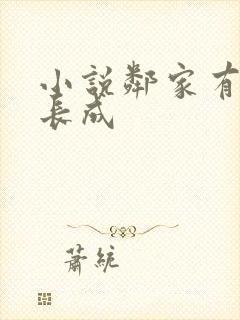 小說鄰家有
長成
蕭統